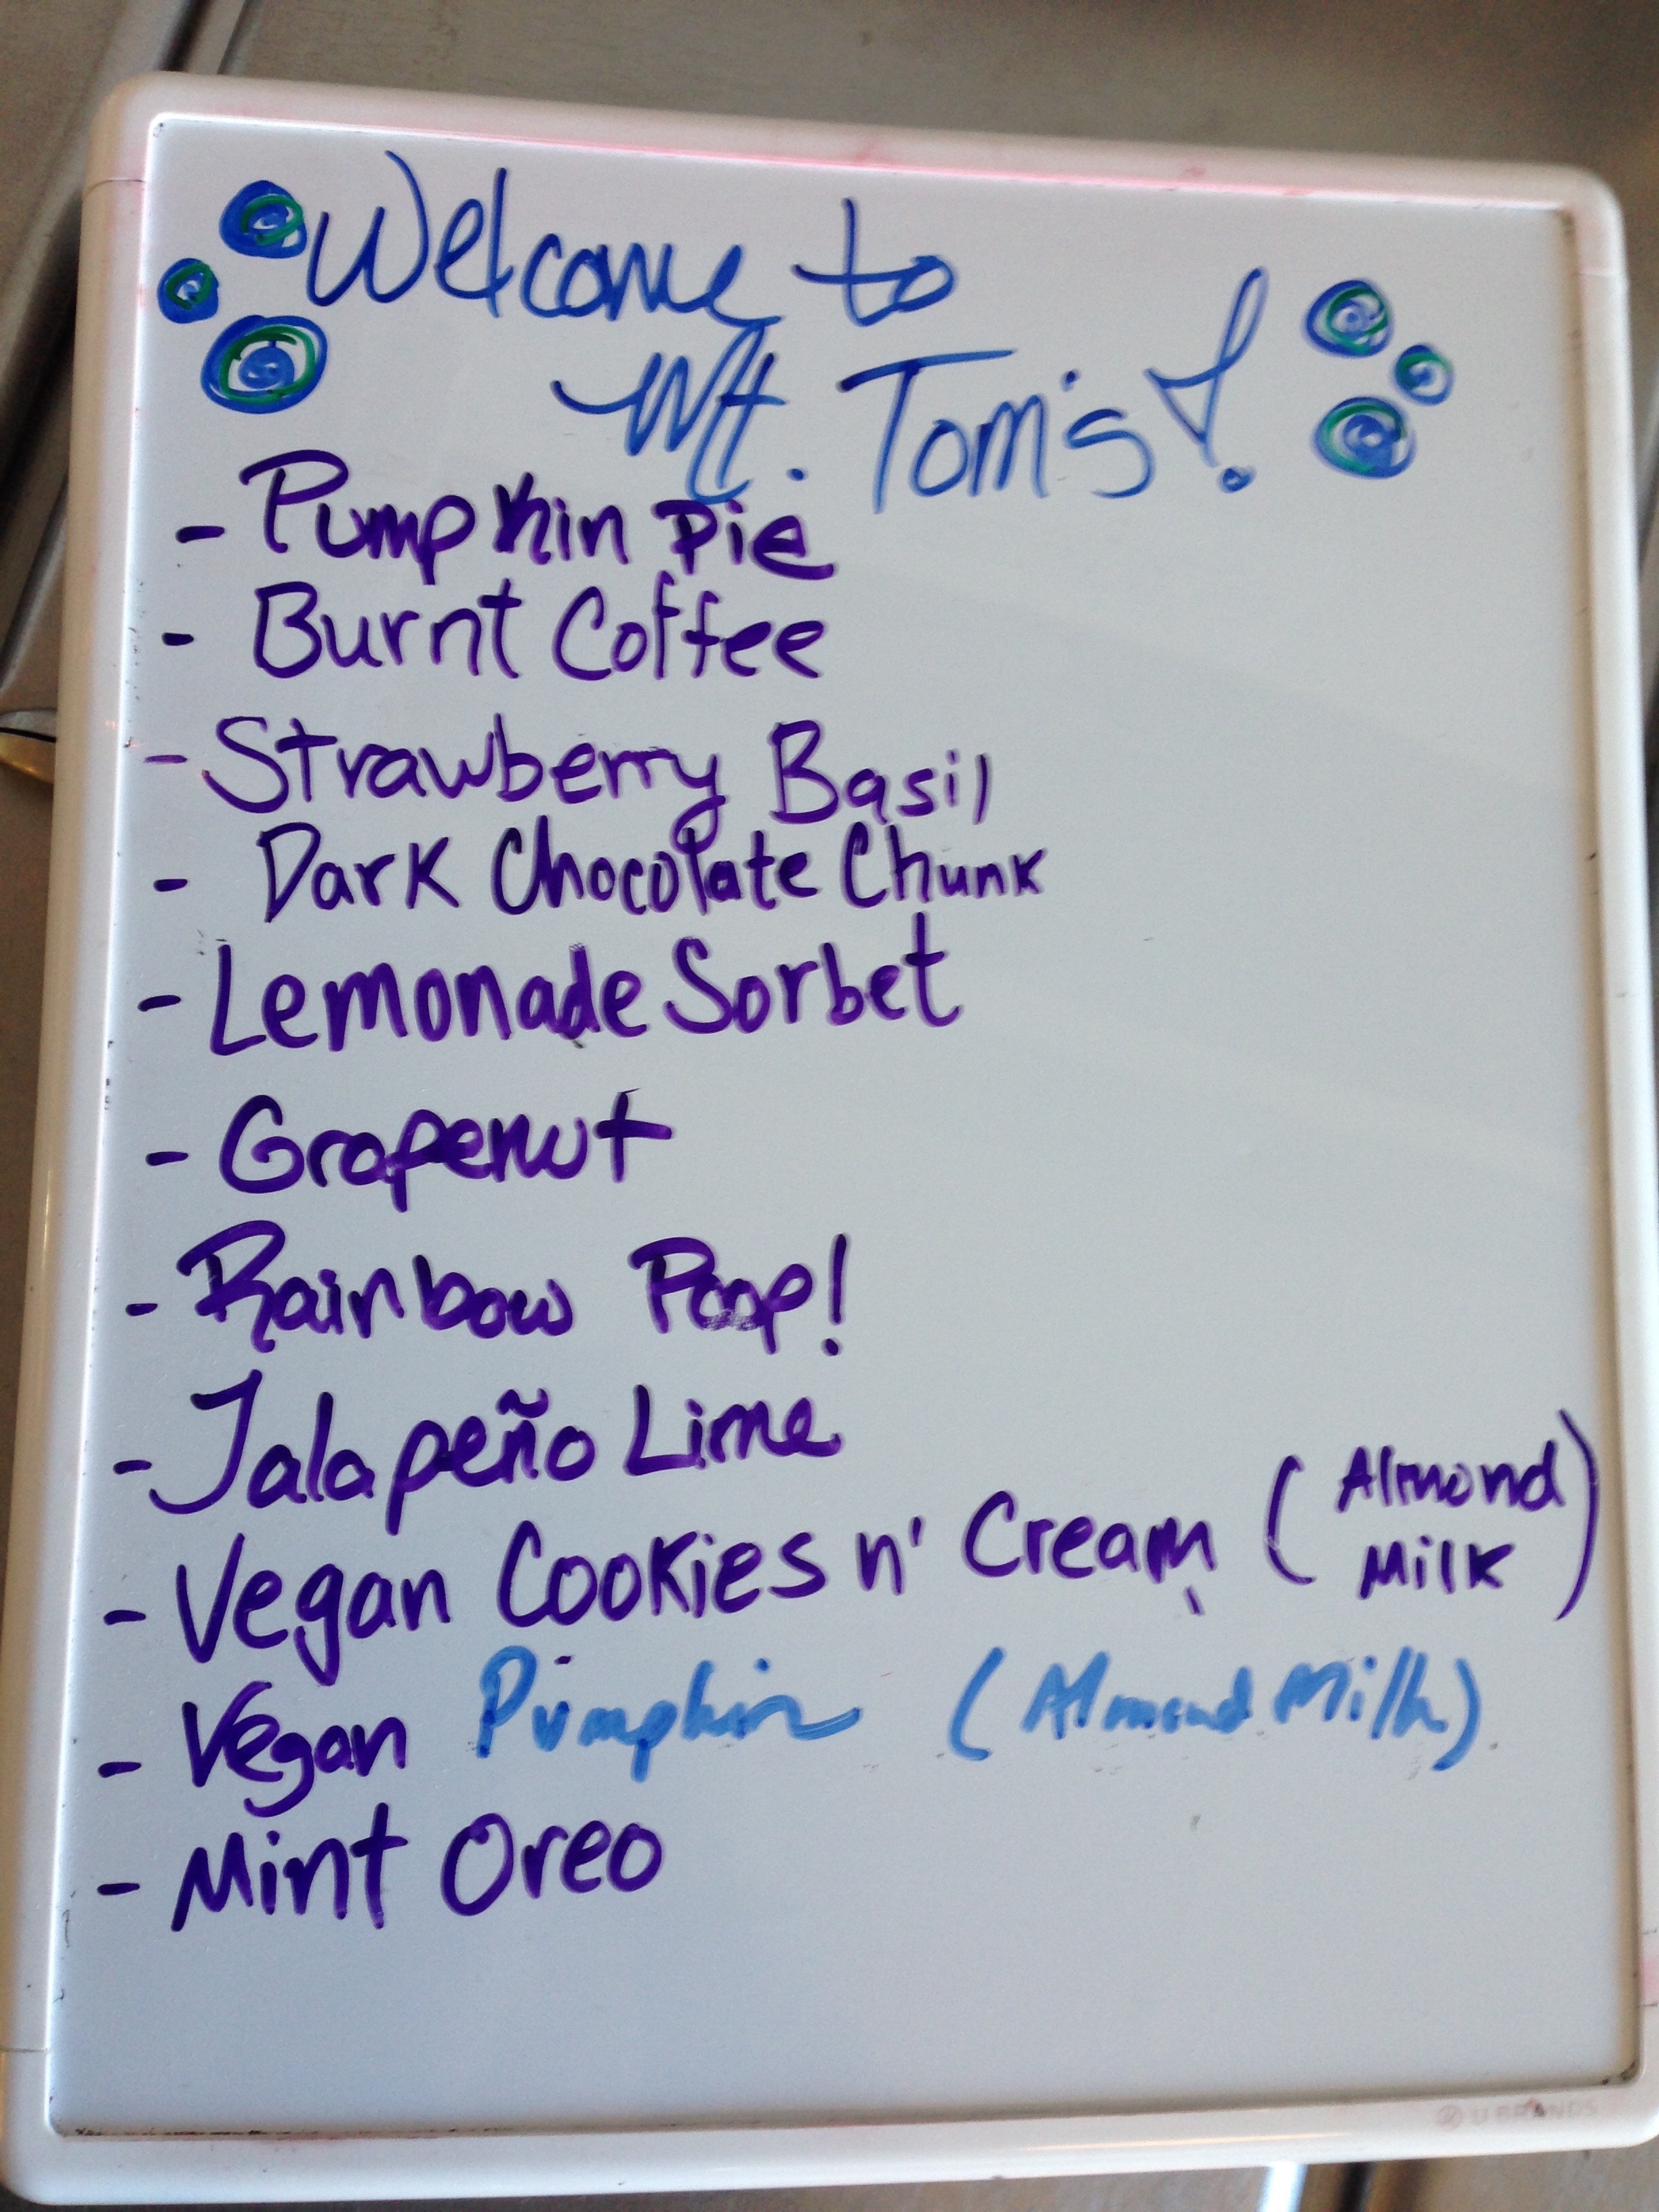 Welcome to
Mt. Tom's!
- Pumpkin Pie
- Burnt Coffee
- Strawberry Basil
- Dark Chocolate Chunk
- Lemonade Sorbet
- Grapenut
- Rainbow Poop!
- Jalapeño Lime
- Vegan Cookies n' Cream (Almond Milk)
- Vegan Pumpkin (Almond Milk)
- Mint Oreo
U BRANDS